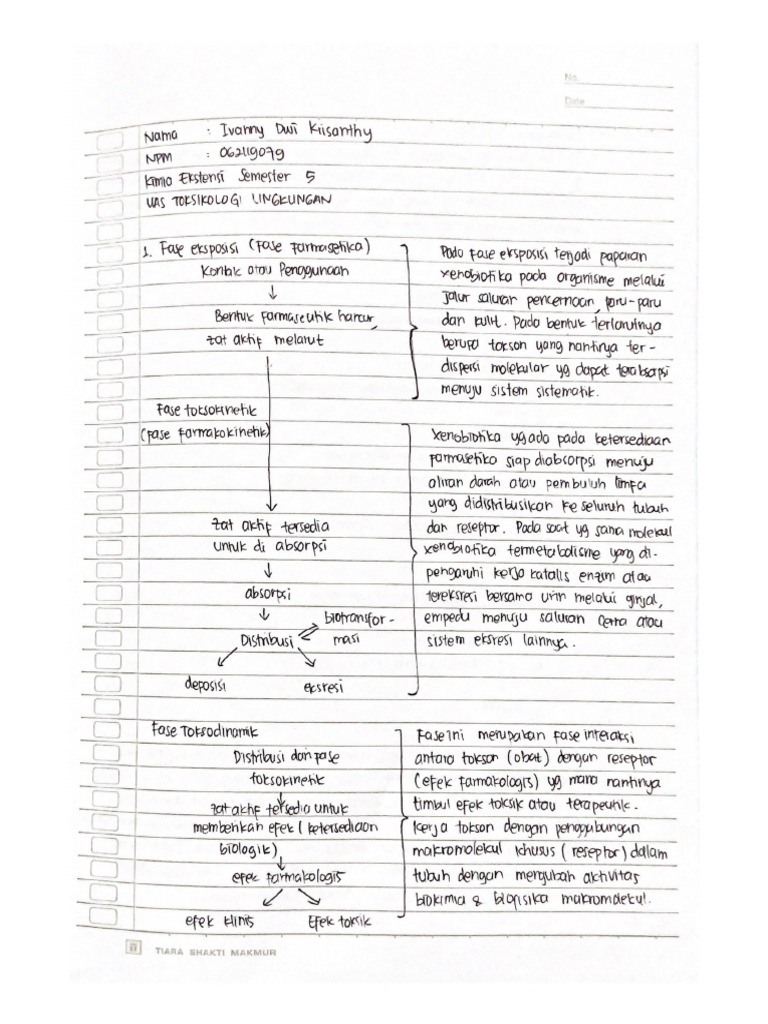 No.
Date
Nama : Ivanny Dwi Krisanthy
NPM : 062119079
Kimia Ekstensi Semester 5
UAS TOKSIKOLOGI LINGKUNGAN
1. Fase eksposisi (Fase Farmasetika)
Kontak atau Penggunaan
↓
Bentuk farmaseutik hancur,
zat aktif melarut
Pada fase eksposisi terjadi paparan
xenobiotika pada organisme melalui
jalur saluran pencernaan, paru-paru
dan kulit. Pada bentuk terlarutnya
berupa tokson yang nantinya ter-
dispersi molekular yg dapat terabsorpsi
menuju sistem sistematik.
Fase toksokinetik
(Fase farmakokinetik)
↓
zat aktif tersedia
untuk di absorpsi
↓
absorpsi
↓
Distribusi ⇌ biotransfor-
masi
deposisi eksresi
xenobiotika yg ada pada ketersediaan
farmasetika siap diabsorpsi menuju
aliran darah atau pembuluh limfa
yang didistribusikan ke seluruh tubuh
dan reseptor. Pada saat yg sama molekul
xenobiotika termetabolisme yang di-
pengaruhi kerja katalis enzim atau
tereksresi bersama urin melalui ginjal,
empedu menuju saluran cerna atau
sistem eksresi lainnya.
Fase Toksodinamik
Distribusi dari fase
toksokinetik
↓
zat aktif tersedia untuk
memberikan efek (ketersediaan
biologik)
↓
efek farmakologis
efek klinis Efek toksik
Fase ini merupakan fase interaksi
antara tokson (obat) dengan reseptor
(efek farmakologis) yg mana nantinya
timbul efek toksik atau terapeutik.
Kerja tokson dengan penggabungan
makromolekul khusus (reseptor) dalam
tubuh dengan mengubah aktivitas
biokimia & biofisika makromolekul.
TIARA BHAKTI MAKMUR